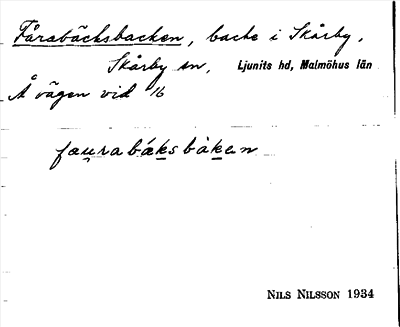 Fårabäcksbacken, backe i Skårby,
Skårby sn, Ljunits hd, Malmöhus län
Å vägen vid 16
faurabáksbàken
NILS NILSSON 1934